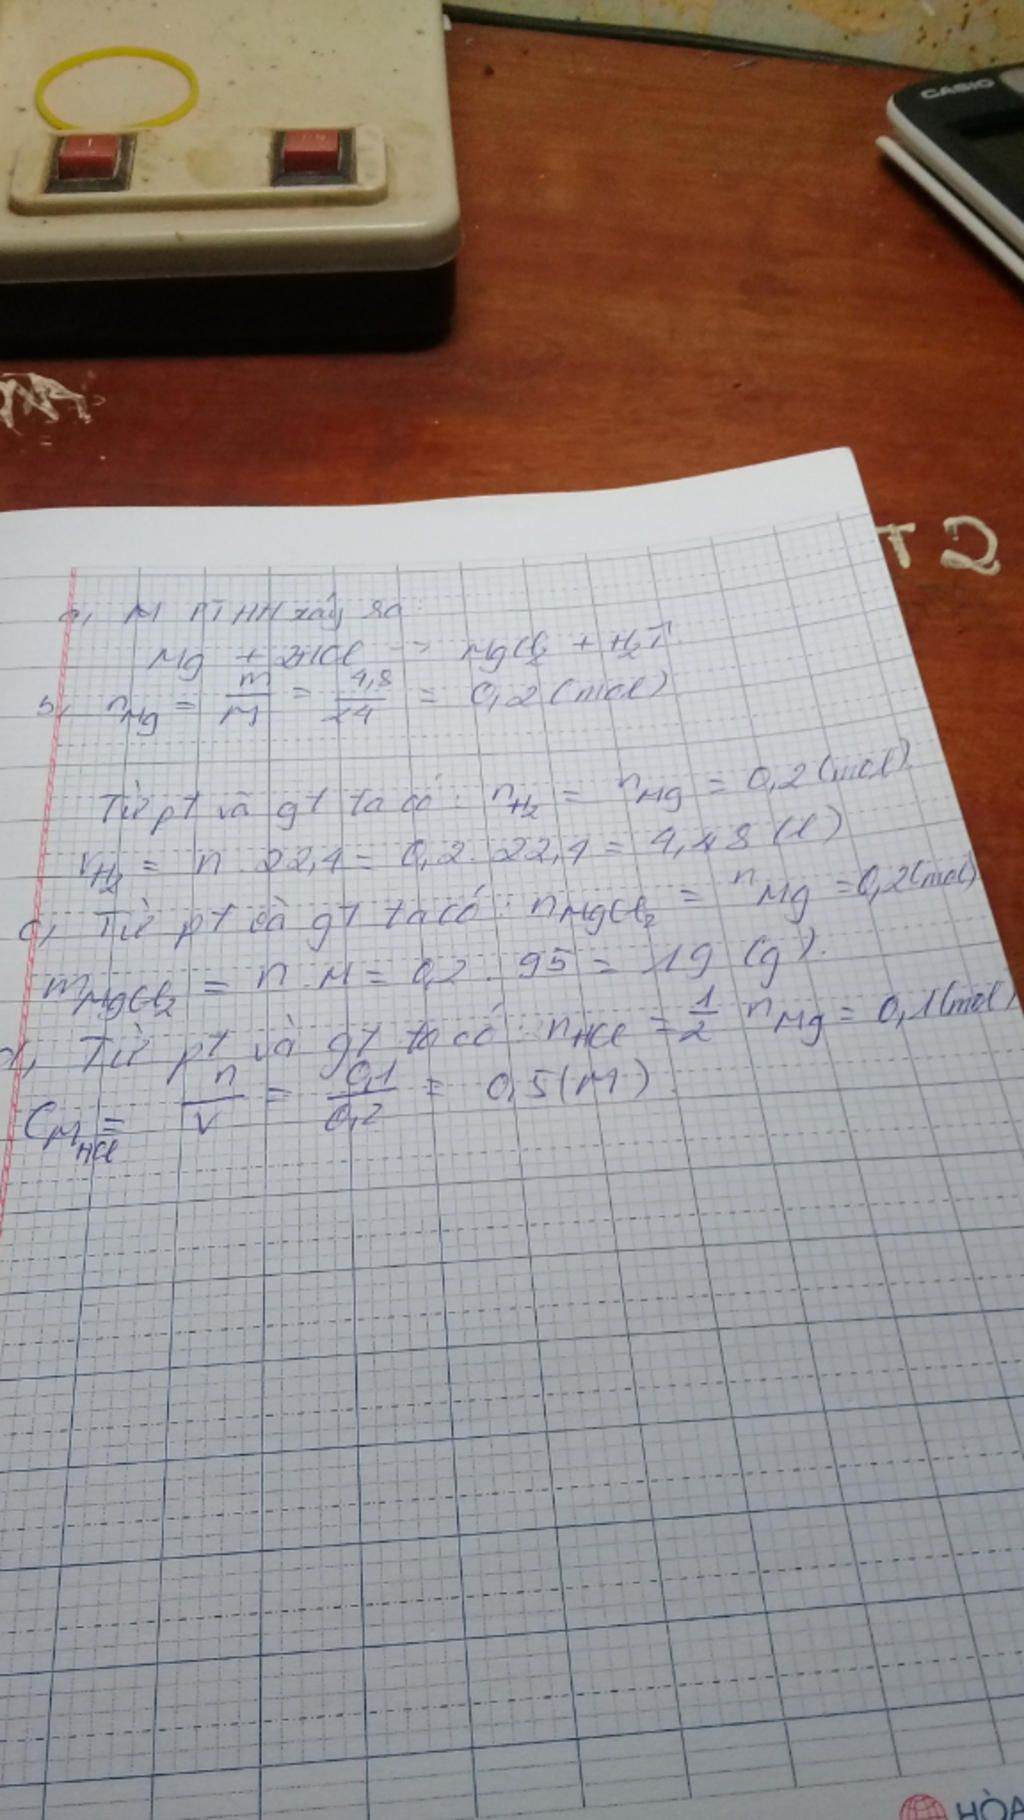 CASIO
T 2
a, PTHH xảy ra
Mg + 2HCl -> MgCl2 + H2↑
b, nMg = m/M = 4,8/24 = 0,2 (mol)
Từ pt và gt ta có: nH2 = nMg = 0,2 (mol)
VH2 = n . 22,4 = 0,2 . 22,4 = 4,48 (l)
c, Từ pt và gt ta có: nMgCl2 = nMg = 0,2 (mol)
mMgCl2 = n . M = 0,2 . 95 = 19 (g).
d, Từ pt và gt ta có: nHCl = 1/2 nMg = 0,1 (mol)
CM HCl = n/V = 0,1/0,2 = 0,5 (M).